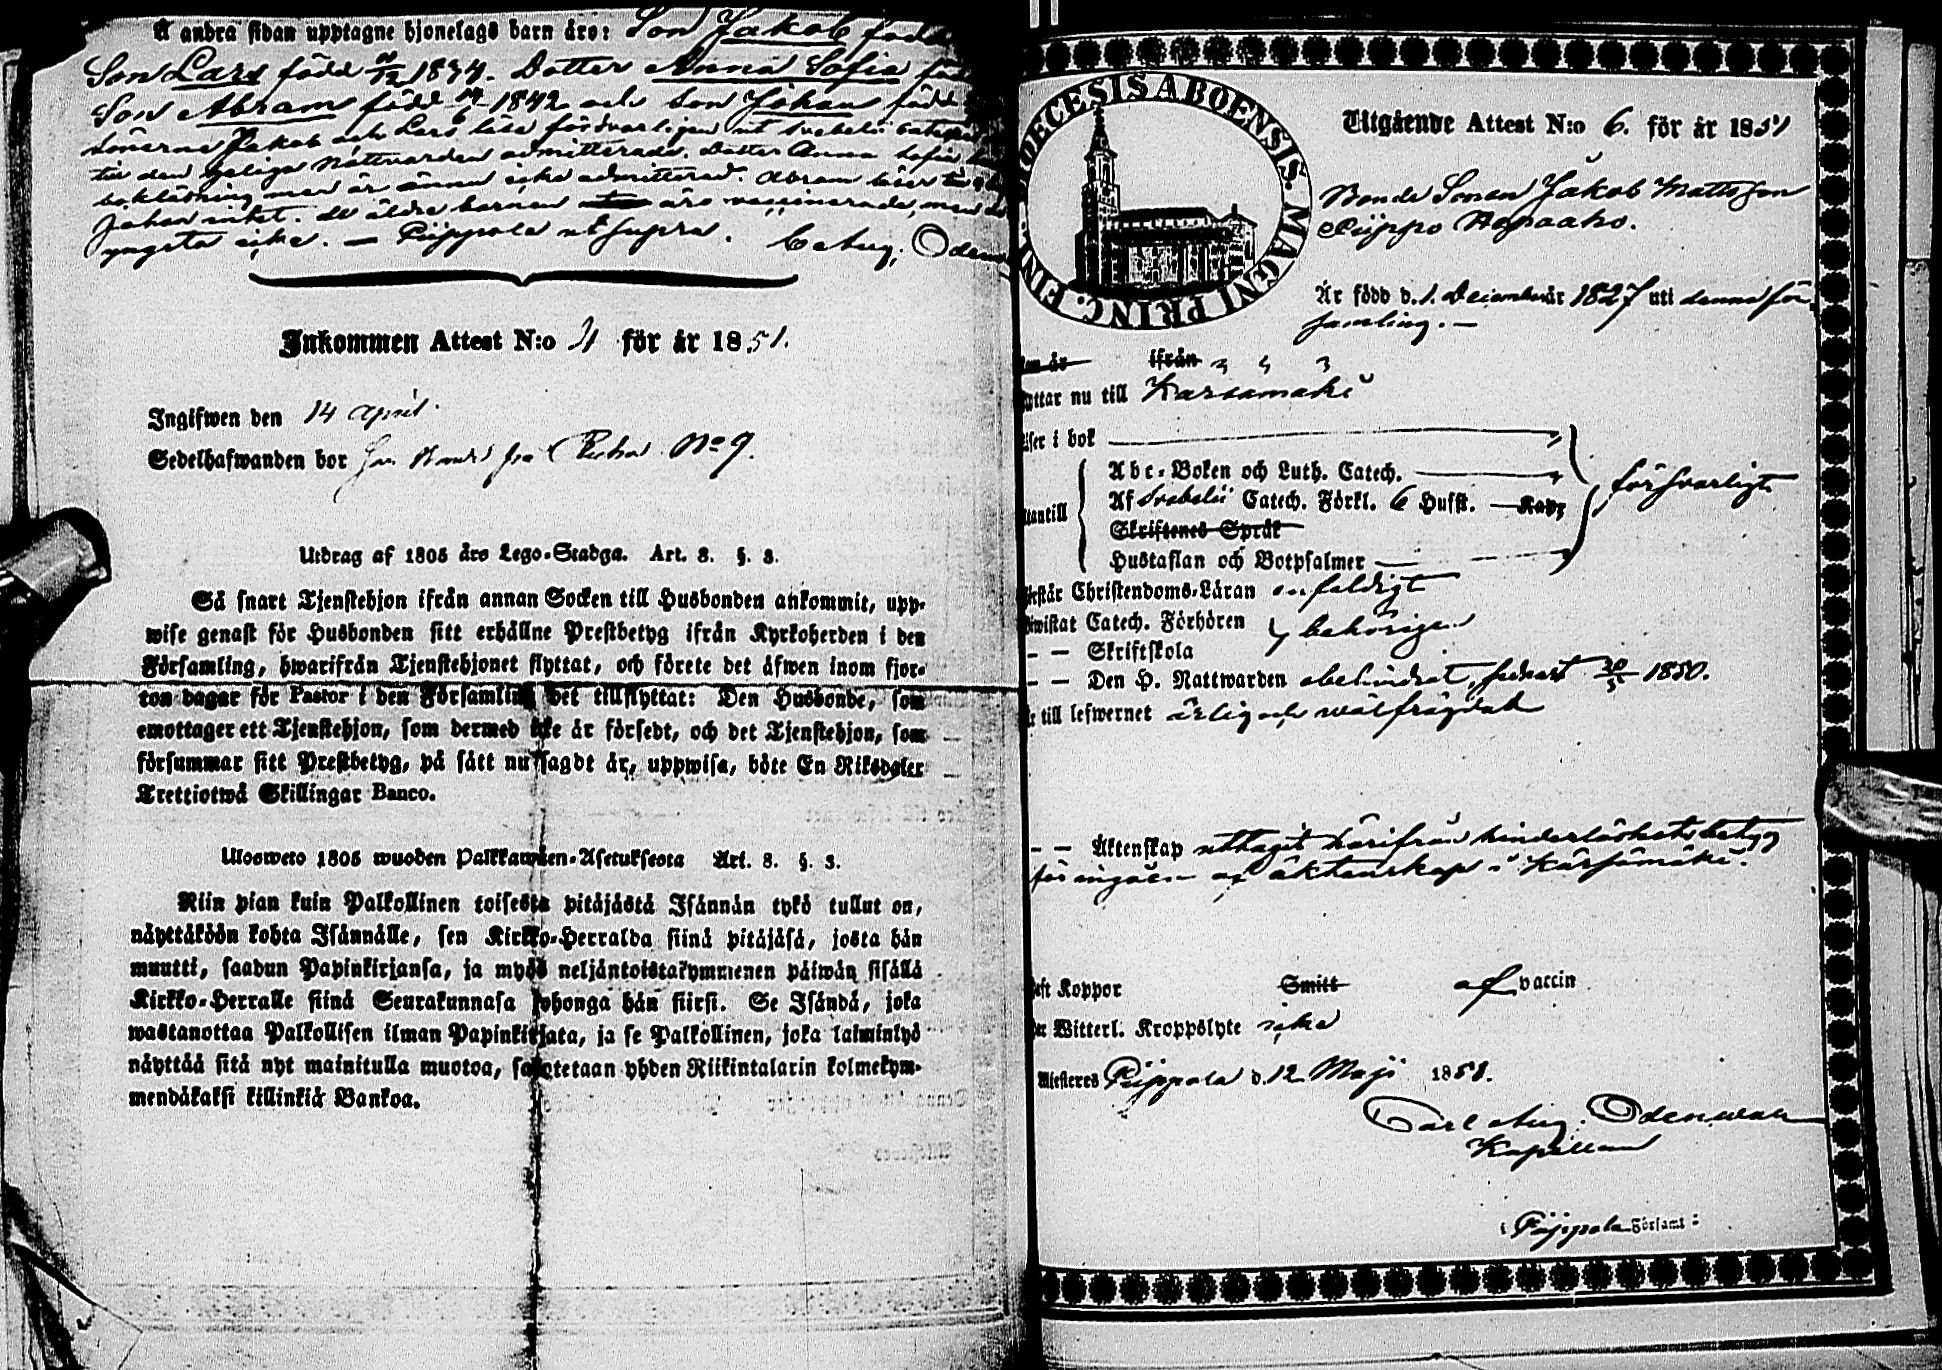 Å andra sidan upptagne hjonelags barn äro: Son Jakob född
Son Lars född 1834. Dotter Anna Sofia
Son Abram född 1842 och Son Johan född
sönerne Jakob och Lars läsa försvarligen ut Svebelii
till den heliga Nattvarden admitterade. Dotter Anna Sofia
bokläsning men är ännu icke admitterad. Abram läser
Johan intet. De äldre barnen äro vaccinerade, men
yngsta icke. — Piippola ut supra. C Aug. Oden
Inkommen Attest N:o 4 för år 1851.
Ingifwen den 14 april.
Sedelhafwanden bor No 9.
Utdrag af 1805 års Lego-Stadga. Art. 8. §. 3.
Så snart Tjenstehjon ifrån annan Socken till Husbonden ankommit, upp-
wise genast för Husbonden sitt erhållne Prestbetyg ifrån Kyrkoherden i den
Församling, hwarifrån Tjenstehjonet flyttat, och förete det äfwen inom fjor-
ton dagar för Pastor i den Församling det tillflyttat: Den Husbonde, som
emottager ett Tjenstehjon, som dermed icke är försedt, och det Tjenstehjon, som
försummar sitt Prestbetyg, på sätt nu sagdt är, uppwisa, böte En Riksdaler
Trettiotwå Skillingar Banco.
Ulosweto 1805 wuoden Palkkawäen-Asetuksesta Art. 8. §. 3.
Niin pian kuin Palkollinen toisesta pitäjästä Isännän tykö tullut on,
näyttäköön kohta Isännälle, sen Kirkko-Herralda siinä pitäjäsä, josta hän
muutti, saadun Papinkirjansa, ja myös neljäntoistakymmenen päiwän sisällä
Kirkko-Herralle siinä Seurakunnasa johonga hän siirsi. Se Isändä, joka
wastanottaa Palkollisen ilman Papinkirjata, ja se Palkollinen, joka laiminlyö
näyttää sitä nyt mainitulla muotoa, sakotetaan yhden Riikintalarin kolmekym-
mendäkaksi killinkiä Bankoa.
DIOECESIS ABOENSIS. MAGNI PRINC. FINL
Utgående Attest N:o 6. för år 1851
Bonde Sonen Jakob Mattsson
Piippo Hapaaho.
Är född d. 1. December år 1827 uti denna för
samling. —
ifrån
flyttar nu till Karsamäki
Läser i bok
Abc-Boken och Luth. Catech.
Af Svebelii Catech. Förkl. 6 Hufst. Kap.
försvarligt
utantill
Skriftenes Språk
Hustaflan och Botpsalmer
förstår Christendoms-Läran enfaldigt
bewistat Catech. Förhören
behörigen
— — Skriftskola
— — Den H. Nattwarden obehindrat, senast 30/5 1850.
till lefwernet ärlig och wälfrägdad
— — Äktenskap uttagit härifrån hinderlöshetsbetyg
för ingående af äktenskap i Kärsämäki.
haft Koppor Smitt af vaccin
Witterl. Kroppslyte icke
Attesteres Piippola d. 12 Maji 1851.
Carl Aug. Odenwall
Kapellan
i Piippola Församl: